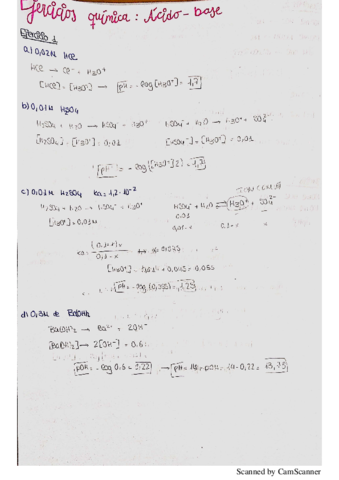 Ejercicios química: Ácido-base
Ejercicio 1
a) 0,02M HCl
HCl → Cl⁻ + H₃O⁺
[HCl] = [H₃O⁺] → pH = -log[H₃O⁺] = 1,7
b) 0,01M H₂SO₄
H₂SO₄ + H₂O → HSO₄⁻ + H₃O⁺ HSO₄⁻ + H₂O → H₃O⁺ + SO₄²⁻
[H₂SO₄] = [H₃O⁺] = 0,01 [HSO₄⁻] = [H₃O⁺] = 0,01
pH = -log([H₃O⁺]2) =
c) H₂SO₄ Ka = 1,2·10⁻²
H₂SO₄ + H₂O → HSO₄⁻ + H₃O⁺ HSO₄⁻ + H₂O ⇌ H₃O⁺ + SO₄²⁻
[H₃O⁺] =
[H₃O⁺] =
pH = -log
d) 0,3M de Ba(OH)₂
Ba(OH)₂ → Ba²⁺ + 2OH⁻
[Ba(OH)₂] → 2[OH⁻] = 0,6
pOH = -log 0,6 = 0,22 → pH = 14 - pOH = 14 - 0,22 =
Scanned by CamScanner